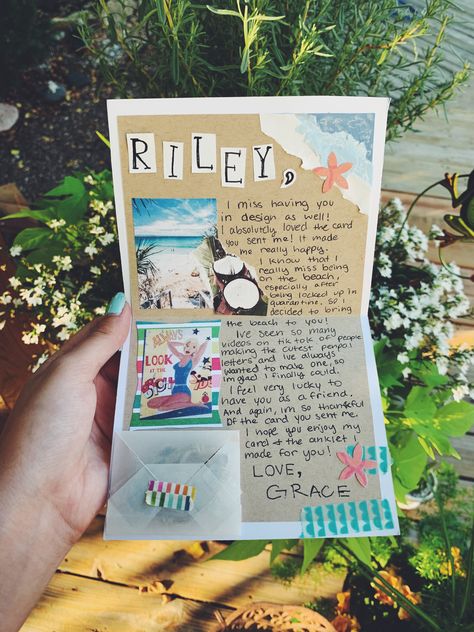 RILEY,
I miss having you
in design as well!
I absolutely loved the card
you sent me! It made
me really happy.
I know that I
really miss being
on the beach,
especially after
being locked up in
quarantine. So I
decided to bring
the beach to you!
I've seen so many
videos on tik tok of people
making the cutest penpal
letters and I've always
wanted to make one, so
im glad I finally could.
I feel very lucky to
have you as a friend.
And again, im so thankful
of the card you sent me.
I hope you enjoy my
card & the anklet I
made for you!
LOVE,
GRACE
ALWAYS
LOOK AT THE
SIDE